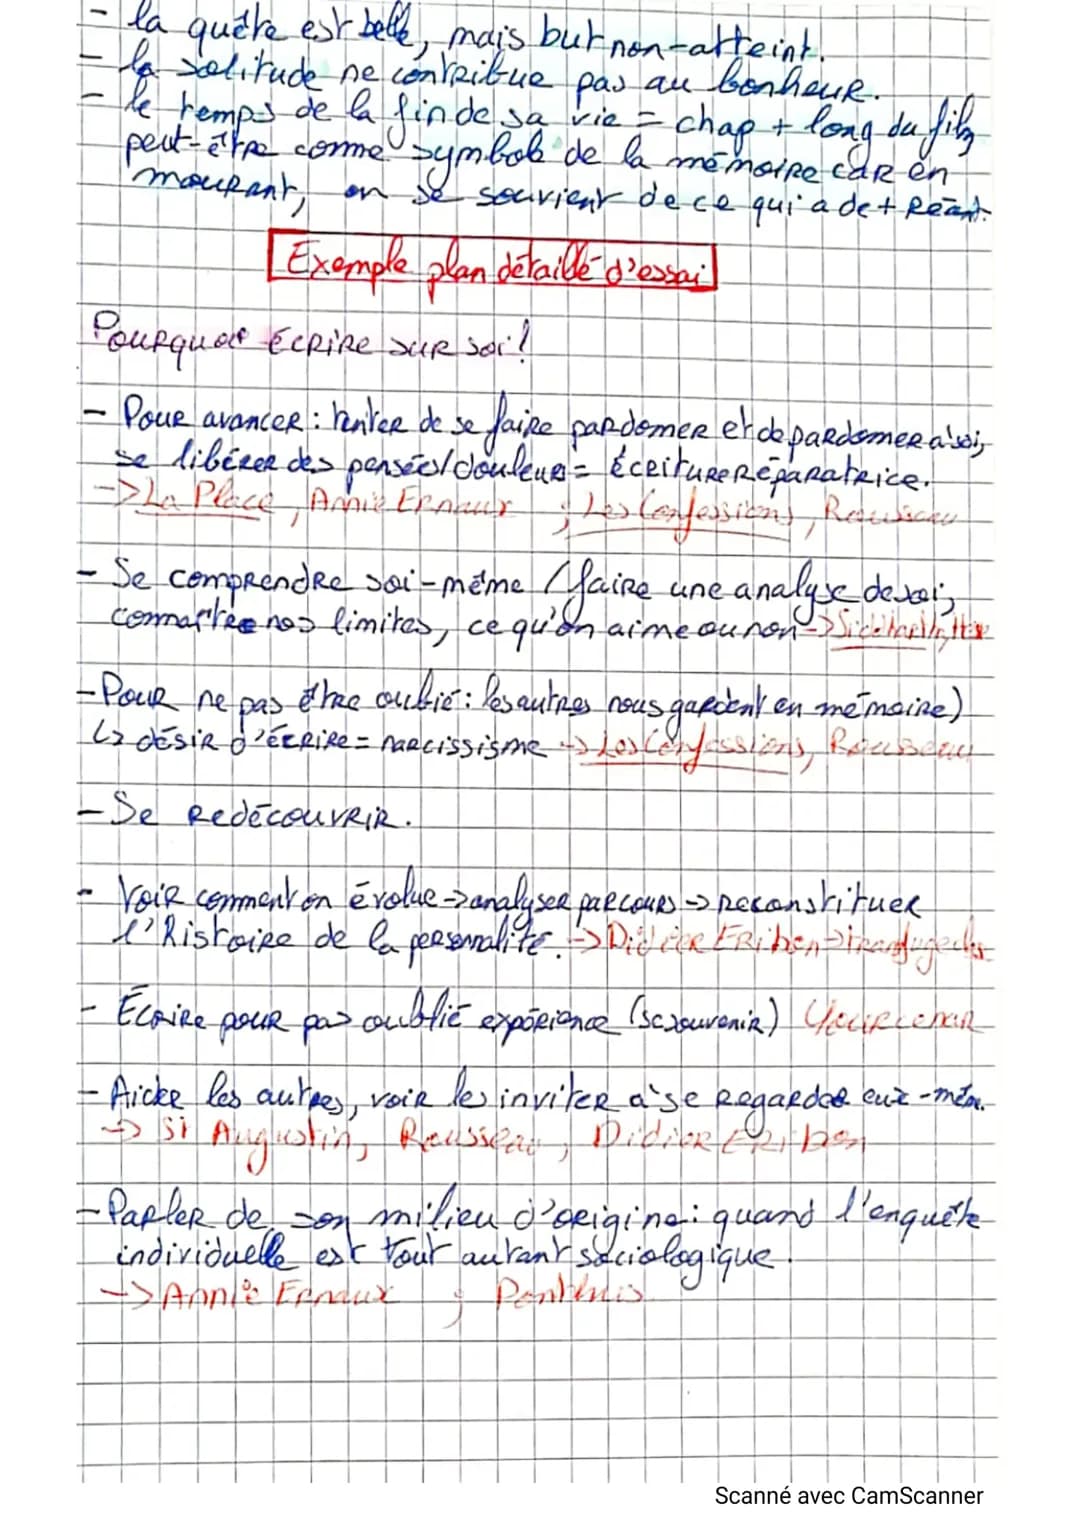 - la quête est belle, mais but non-atteint.
- la solitude ne contribue pas au bonheur.
- le temps de la fin de sa vie = chap + long du film
peut-être comme symbole de la mémoire car en
mourant, on se souvient de ce qui a de + Récent.
Exemple plan détaillé d'essai
Pourquoi écrire sur soi!
- Pour avancer : tenter de se faire pardonner et de pardonner à soi,
se libérer des pensées/douleurs = écriture réparatrice.
-> La Place, Annie Ernaux ; Les Confessions, Rousseau
- Se comprendre soi-même (faire une analyse de soi,
connaître nos limites, ce qu'on aime ou non -> Siddhartha, Hesse
- Pour ne pas être oublié : les autres nous gardent en mémoire)
↳ désir d'écrire = narcissisme -> Les Confessions, Rousseau
- Se redécouvrir.
- Voir comment on évolue -> analyser parcours -> reconstituer
l'histoire de la personnalité. -> Didier Eribon ->
- Écrire pour pas oublié expérience (se souvenir) Yourcenar
- Aider les autres, voir les inviter à se regarder eux-mêm.
-> St Augustin, Rousseau, Didier Eribon
- Parler de son milieu d'origine : quand l'enquête
individuelle est tout autant sociologique.
-> Annie Ernaux ; Ponthus
Scanné avec CamScanner